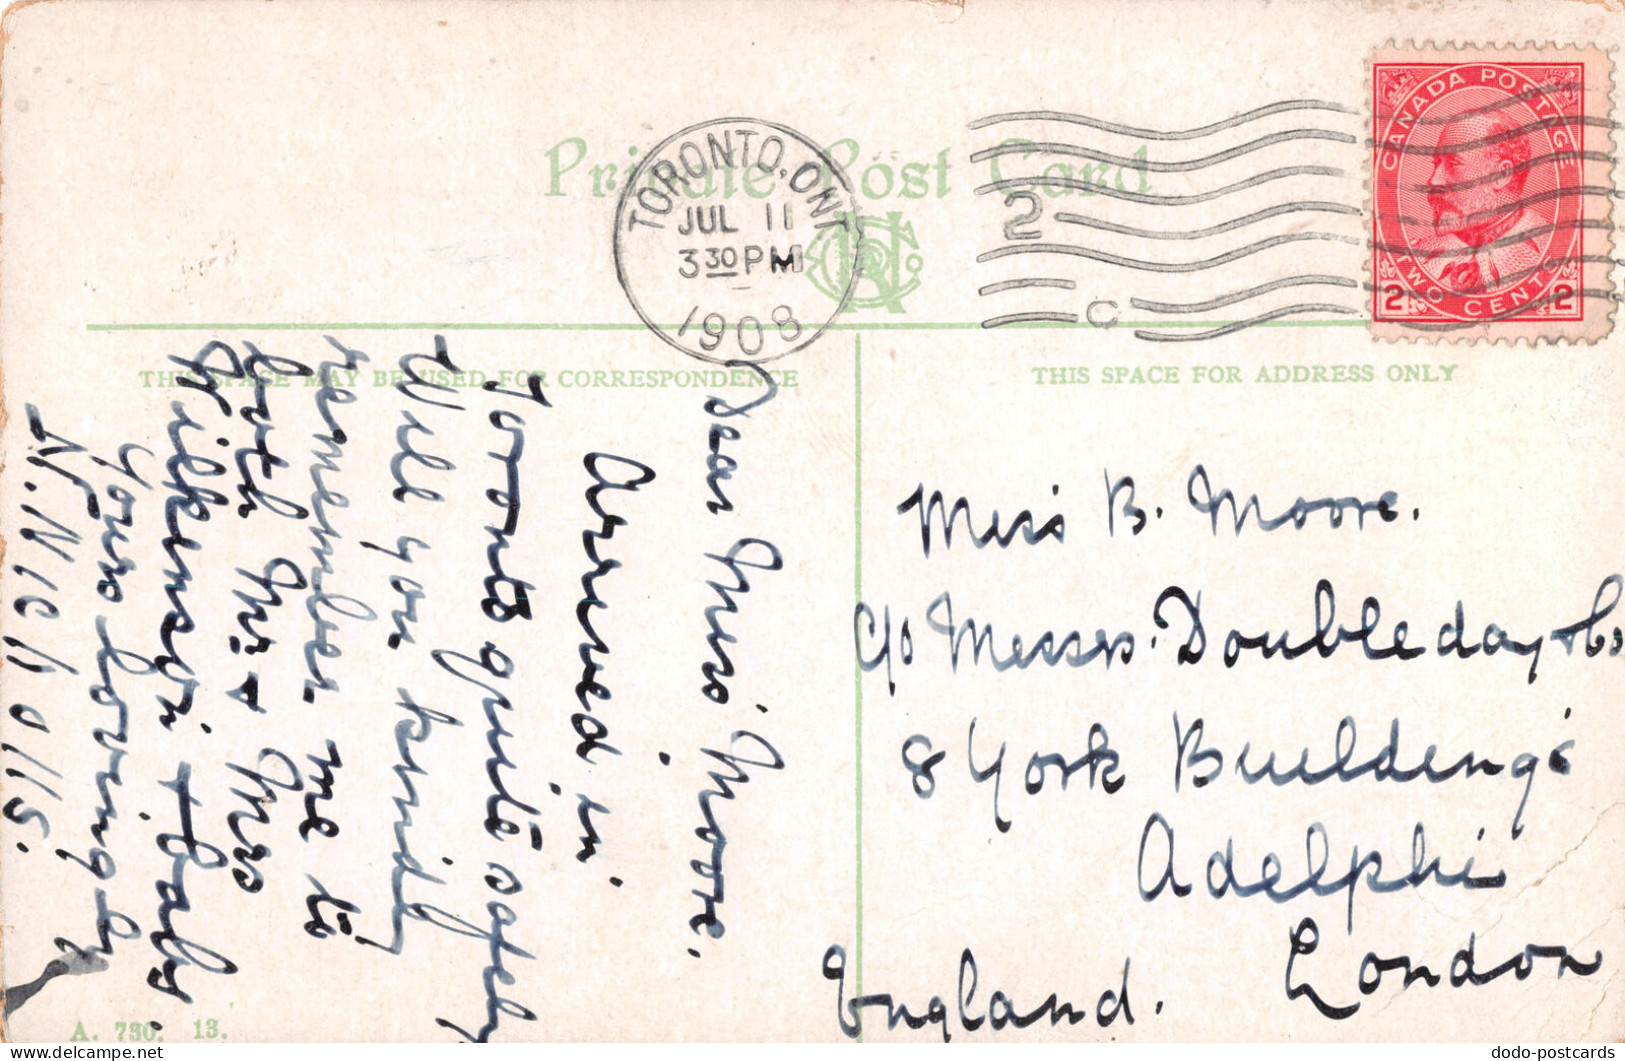 Private Post Card
TORONTO, ONT
JUL 11
3 30 PM
1908
2
C
CANADA POSTAGE
TWO CENTS
2 2
THIS SPACE MAY BE USED FOR CORRESPONDENCE
THIS SPACE FOR ADDRESS ONLY
Dear Miss Moore.
Arrived in
Toronto quite safely.
Will you kindly
remember me to
both Mr. & Mrs
Wilkinson & baby.
Yours lovingly
N. Nicholls.
Miss B. Moore.
c/o Messrs. Doubleday & Co
8 York Buildings
Adelphi
London
England.
A. 730. 13.
dodo-postcards